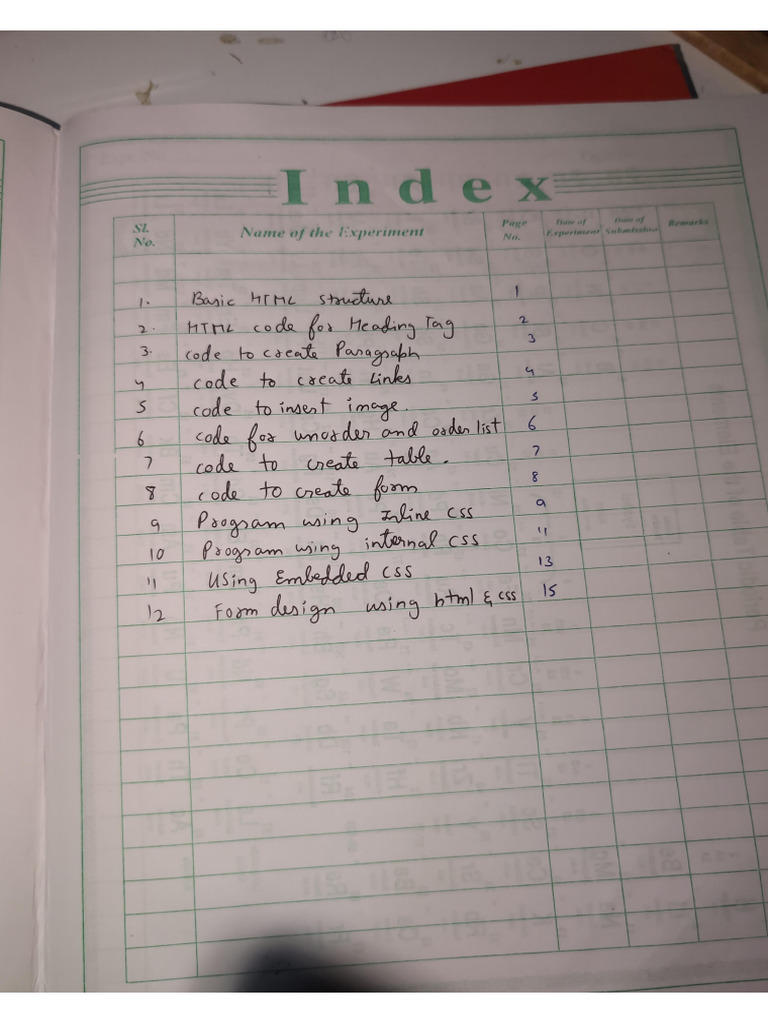 Index
Sl. No. Name of the Experiment Page No. Date of Experiment Date of Submission Remarks
1. Basic HTML structure 1
2. HTML code for Heading Tag 2
3. code to create Paragraph 3
4 code to create Links 4
5 code to insert image. 5
6 code for unorder and order list 6
7 code to create table. 7
8 code to create form 8
9 Program using Inline CSS 9
10 Program using internal CSS 11
11 Using Embedded CSS 13
12 Form design using html & css 15